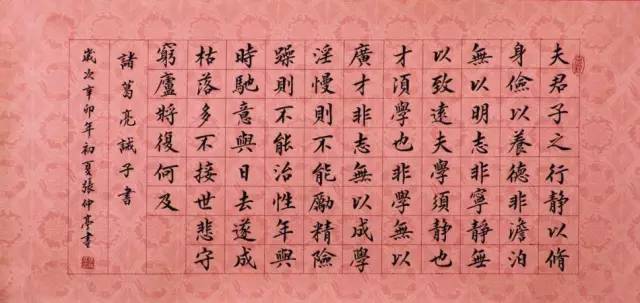 夫君子之行静以脩
身儉以養德非澹泊
無以明志非寧静無
以致遠夫學須静也
才須學也非學無以
廣才非志無以成學
淫慢則不能勵精險
躁則不能治性年與
時馳意與日去遂成
枯落多不接世悲守
窮廬將復何及
諸葛亮誡子書
歲次辛卯年初夏張仲亭書